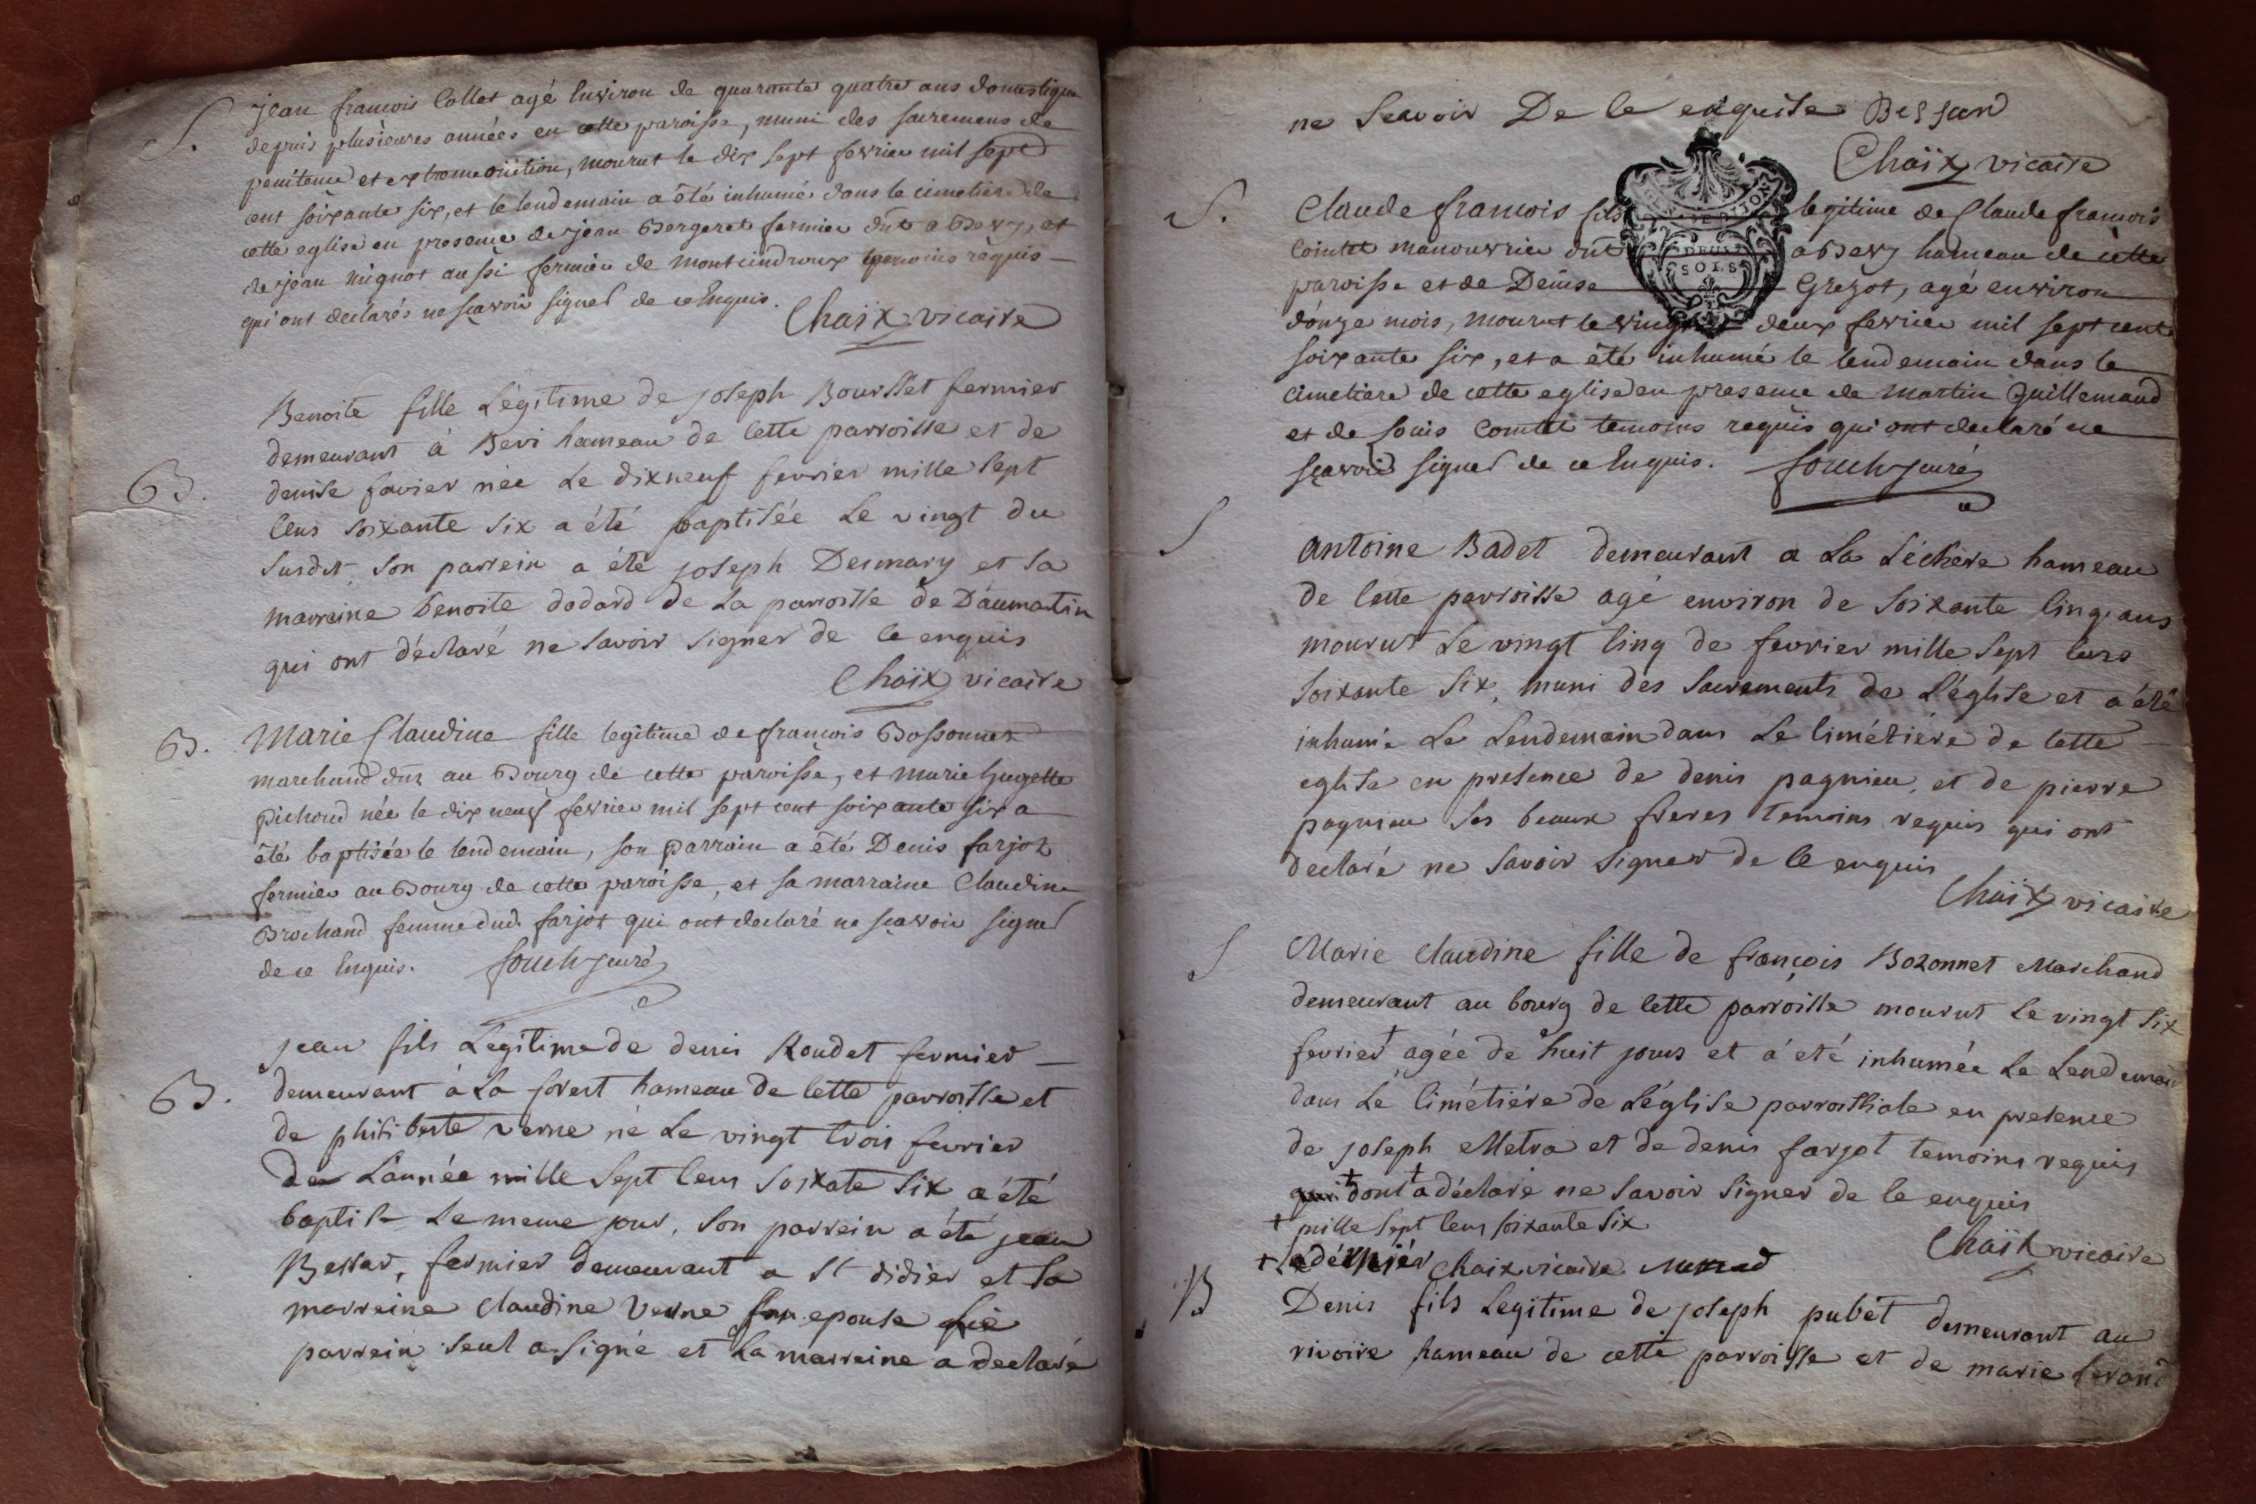 S.
jean francois Collet agé Environ de quarante quatre ans domestique
depuis plusieures années en cette paroisse, muni des sacremens de
penitence et extreme onction, mourut le dix sept fevrier mil sept
cent soixante six, et le lendemain a été inhumé dans le cimetiere de
cette eglise en presence de jean Bergeret fermier dmt a Bevy, et
de jean mignot aussi fermier de montcindroux temoins requis
qui ont declarés ne scavoir signer de ce Enquis.
Chaix vicaire
Benoite fille Légitime de joseph Bourset fermier
demeurant à Bevi hameau de Cette parroisse et de
B.
denise favier née Le dixneuf fevrier mille sept
Cens soixante six a été baptisée Le vingt du
susdit, son parrein a été joseph Desmary et sa
marreine benoite dodard de la parroisse de Daumatin
qui ont déclaré ne savoir signer de Ce enquis
Chaix vicaire
B.
Marie Claudine fille legitime de francois Bossonnet
marchand dmt au Bourg de cette paroisse, et marie hugette
pichoud née le dix neuf fevrier mil sept cent soixante six a
été baptisée le lendemain, son parrain a été Denis farjot
fermier au Bourg de cette paroisse, et sa marraine Claudine
Brochand femme dud farjot qui ont declaré ne scavoir signer
de ce Enquis.
curé
jean fils Légitime de denis Roudet fermier
B.
demeurant à La forest hameau de Cette parroisse et
de philiberte verne né Le vingt trois fevrier
de L'année mille sept Cens soixate six a été
baptisé Le meme jour, son parrein a été jean
Bessar, fermier demeurant a st didier et sa
marreine Claudine Verne son epouse Le
parrein seul a signé et La marreine a declaré
ne seavoir De Ce enquise Bessard
Chaix vicaire
S.
Claude francois fils legitime de Claude francois
Comtet manouvrier dmt a Bevy hameau de cette
DEUX
SOLS
paroisse et de Denise Grezot, agé environ
donze mois, mourut le vingt deux fevrier mil sept cent
soixante six, et a été inhumé le lendemain dans le
cimetiere de cette eglise en presence de martin Guillemaud
et de Louis Comtet temoins requis qui ont declaré ne
scavoir signer de ce Enquis.
curé
S
antoine Badet demeurant a La Léchere hameau
de Cette parroisse agé environ de soixante Cinq ans
mourut Le vingt Cinq de fevrier mille sept Cens
soixante six, muni des sacrements de L'église et a été
inhumé Le Lendemain dans Le Cimétiére de Cette
eglise en presence de denis pagnieu, et de pierre
pagnieu ses beaux freres temoins requis qui ont
declaré ne savoir signer de Ce enquis
Chaix vicaire
S
Marie Claudine fille de françois Bozonnet Marchand
demeurant au bourg de Cette parroisse mourut Le vingt six
fevrier + agée de huit jours et a été inhumée Le Lendemain
dans Le Cimétiére de L'église parroissiale en presence
de joseph Metra et de denis farjot temoins requis
qui + dont + a déclaré ne savoir signer de Ce enquis
+ mille sept Cens soixante six
Chaix vicaire
+ Chaix vicaire
B
Denis fils Legitime de joseph pubet demeurant au
rivoire hameau de cette parroisse et de marie